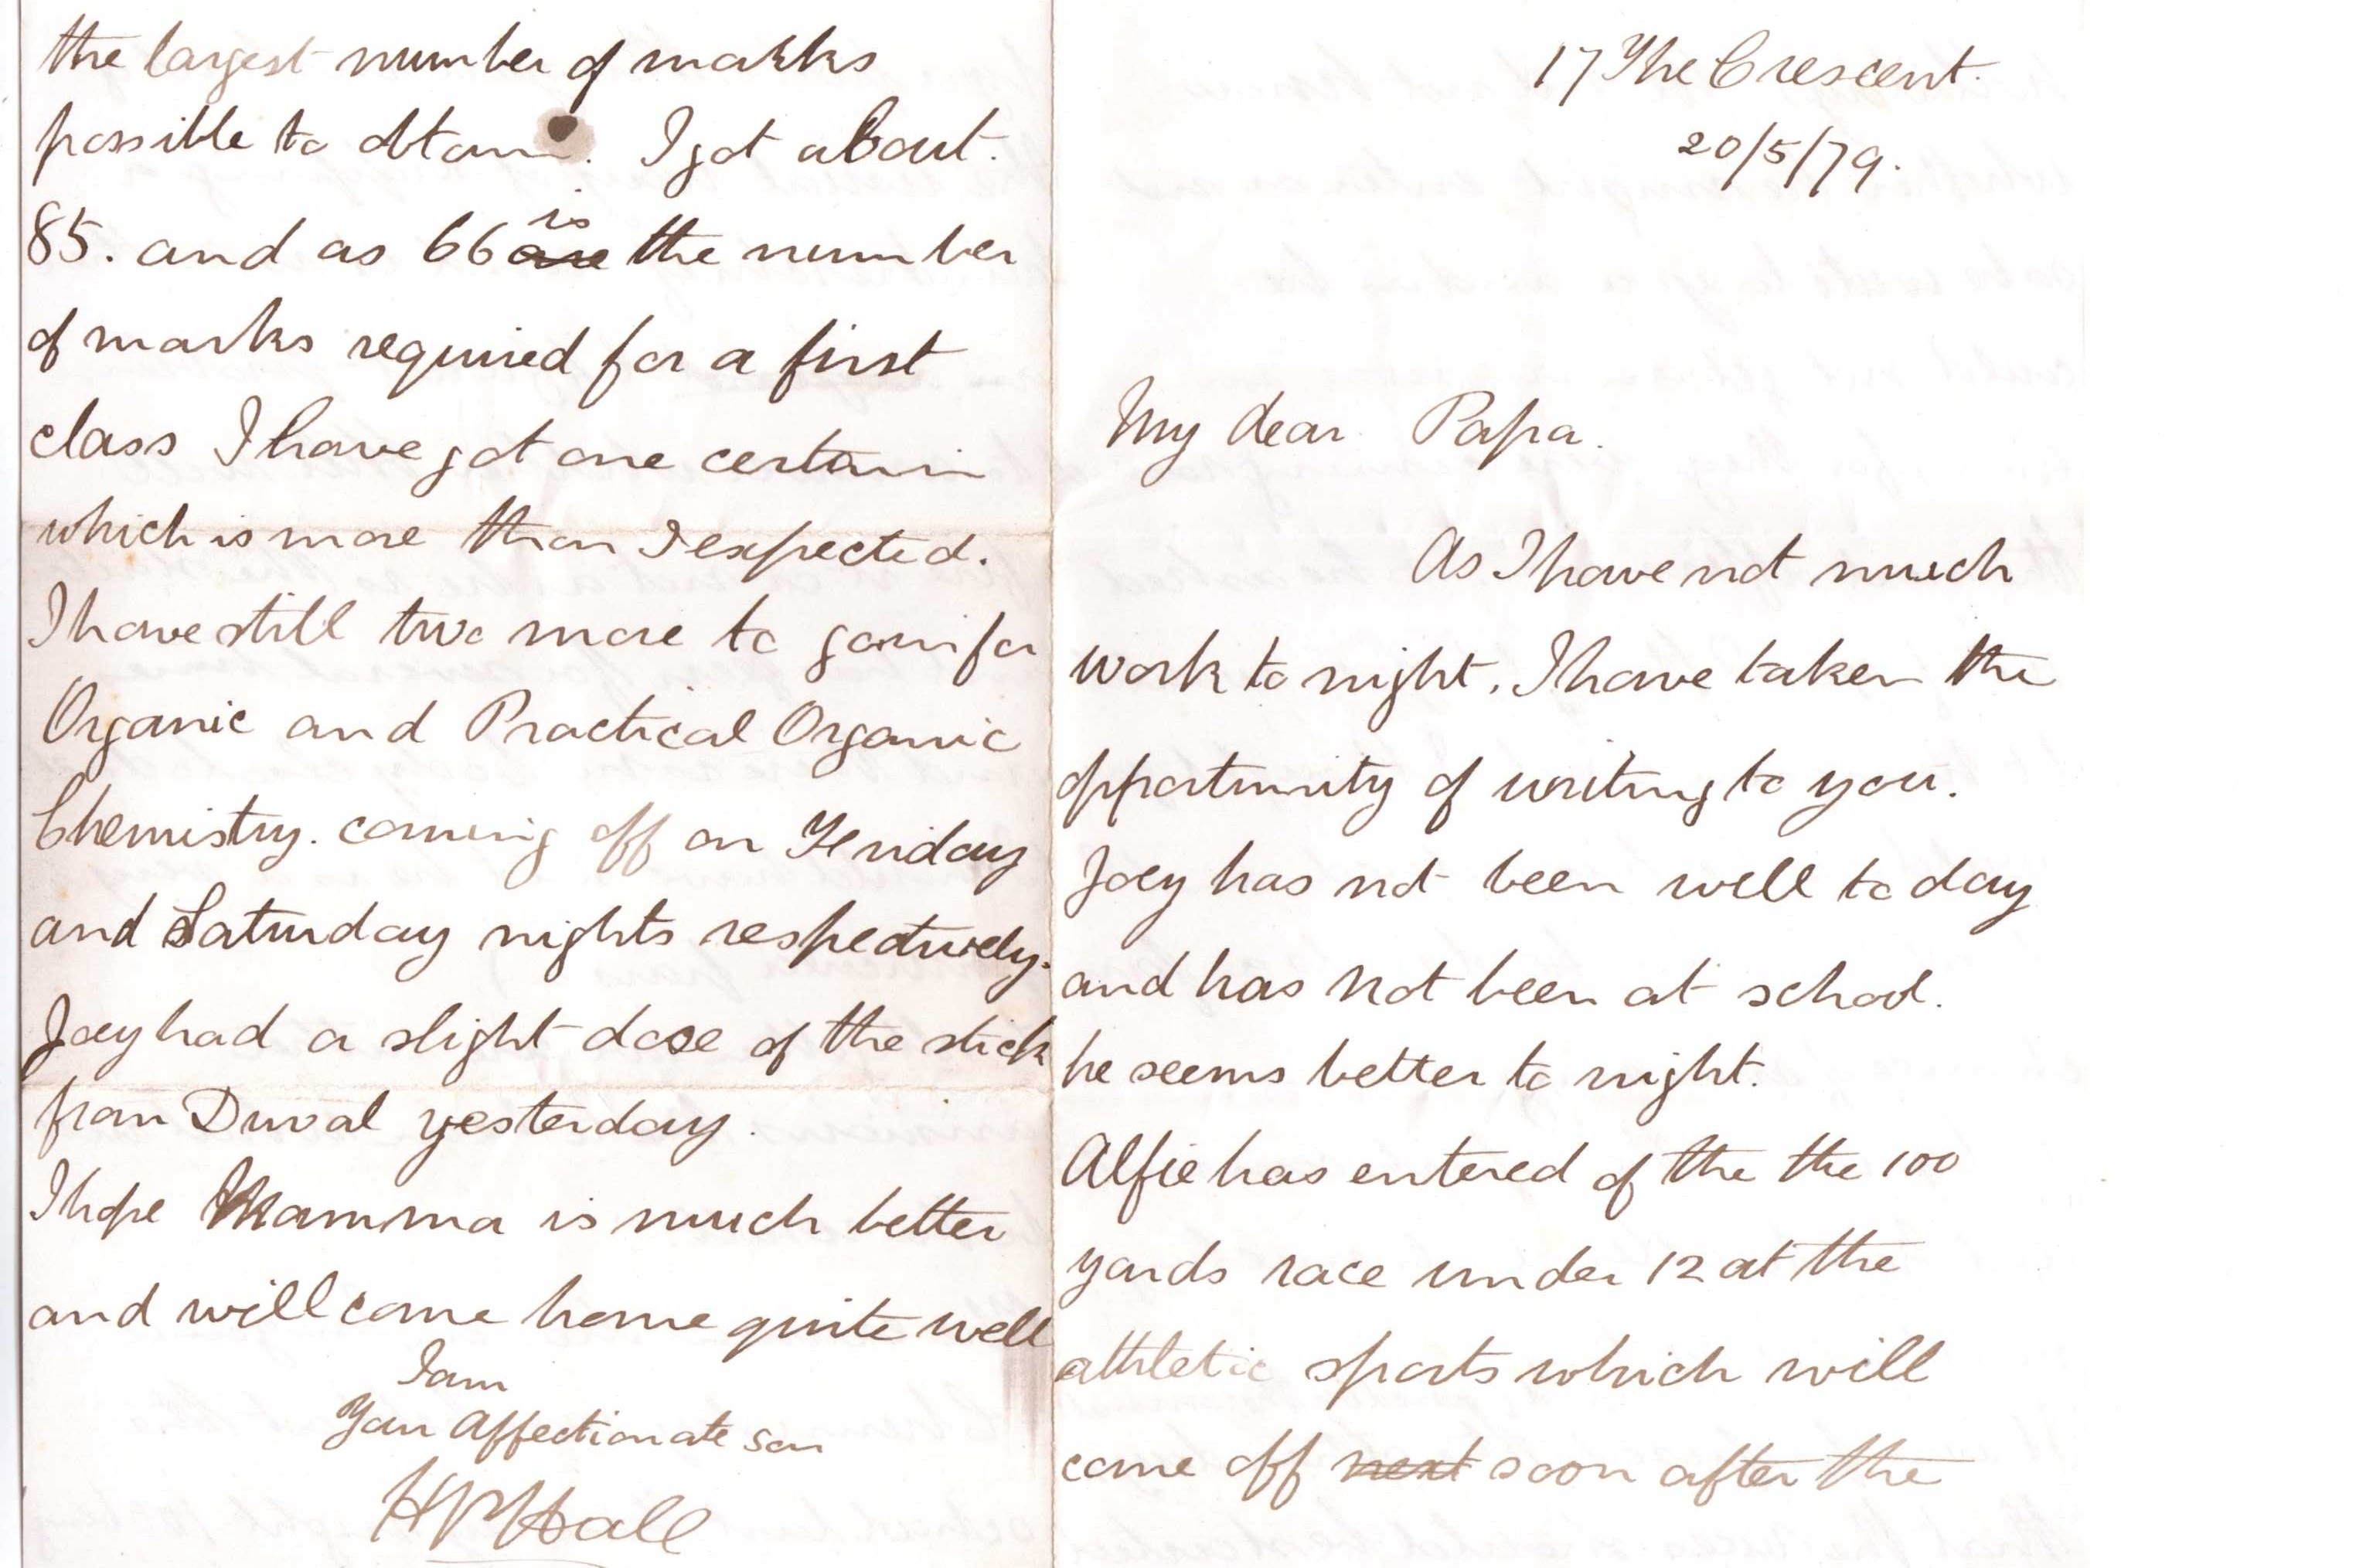 17 The Crescent.
20/5/79.
My dear Papa.
As I have not much
work to night. I have taken the
opportunity of writing to you.
Joey has not been well to day
and has not been at school.
he seems better to night.
Alfie has entered of the the 100
yards race under 12 at the
athletic sports which will
come off next soon after the
the largest number of marks
possible to obtain. I got about
85. and as 66 are is the number
of marks required for a first
class I have got one certain
which is more than I expected.
I have still two more to go in for
Organic and Practical Organic
Chemistry. coming off on Friday
and Saturday nights respectively.
Joey had a slight dose of the stick
from Duval yesterday.
I hope Mamma is much better
and will come home quite well
I am
Your Affectionate son
H P Hall